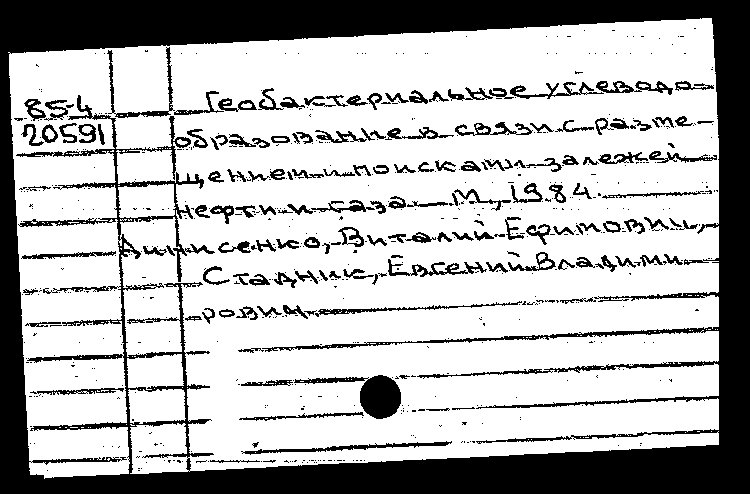 85-4 Геобактериальное углеводо-
20591 образование в связи с разме-
щением и поисками залежей
нефти и газа. М., 1984.
Димисенко, Виталий Ефимович,
Стадник, Евгений Владими
рович